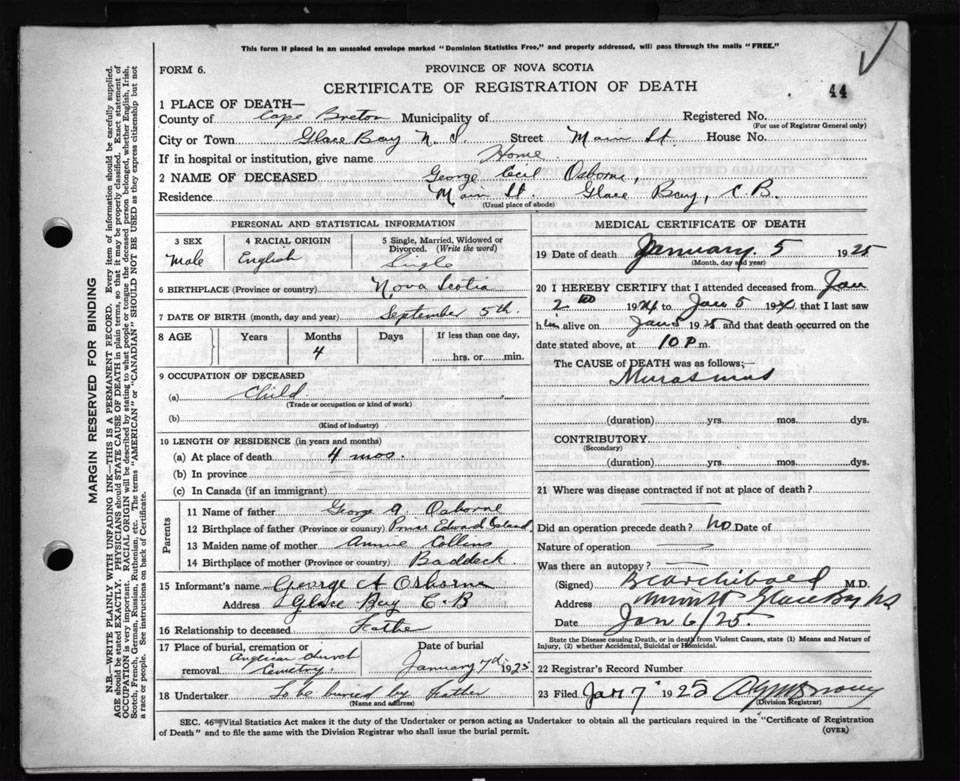 This form if placed in an unsealed envelope marked "Dominion Statistics Free," and properly addressed, will pass through the mails "FREE."
FORM 6.
PROVINCE OF NOVA SCOTIA
CERTIFICATE OF REGISTRATION OF DEATH
44
1 PLACE OF DEATH—
County of Cape Breton Municipality of Registered No.
(For use of Registrar General only)
City or Town Glace Bay N. S. Street Main St. House No.
If in hospital or institution, give name Home
2 NAME OF DECEASED George Cecil Osborne,
Residence Main St. Glace Bay, C. B.
(Usual place of abode)
PERSONAL AND STATISTICAL INFORMATION
3 SEX Male
4 RACIAL ORIGIN English
5 Single, Married, Widowed or Divorced. (Write the word) Single
6 BIRTHPLACE (Province or country) Nova Scotia
7 DATE OF BIRTH (month, day and year) September 5th.
8 AGE Years Months Days If less than one day,
4 hrs. or min.
9 OCCUPATION OF DECEASED
(a) Child
(Trade or occupation or kind of work)
(b)
(Kind of industry)
10 LENGTH OF RESIDENCE (in years and months)
(a) At place of death 4 mos.
(b) In province
(c) In Canada (if an immigrant)
Parents
11 Name of father George A. Osborne
12 Birthplace of father (Province or country) Prince Edward Island
13 Maiden name of mother Annie Collins
14 Birthplace of mother (Province or country) Baddeck
15 Informant's name George A Osborne
Address Glace Bay C. B
16 Relationship to deceased Father
17 Place of burial, cremation or removal Anglican Church Cemetry.
Date of burial January 7th 1925
18 Undertaker To be buried by Father
(Name and address)
MEDICAL CERTIFICATE OF DEATH
19 Date of death January 5 1925
(Month, day and year)
20 I HEREBY CERTIFY that I attended deceased from Jan
2nd 192 to Jan 5 192 that I last saw
him alive on Jan 5 1925 and that death occurred on the
date stated above, at 10 P m.
The CAUSE of DEATH was as follows;—
(duration) yrs. mos. dys.
CONTRIBUTORY
(Secondary)
(duration) yrs. mos. dys.
21 Where was disease contracted if not at place of death?
Did an operation precede death? No Date of
Nature of operation
Was there an autopsy?
(Signed) Archibald M.D.
Address Glace Bay NS
Date Jan 6/25.
State the Disease causing Death, or in death from Violent Causes, state (1) Means and Nature of Injury, (2) whether Accidental, Suicidal or Homicidal.
22 Registrar's Record Number
23 Filed Jan 7 1925
(Division Registrar)
SEC. 46—Vital Statistics Act makes it the duty of the Undertaker or person acting as Undertaker to obtain all the particulars required in the "Certificate of Registration
of Death" and to file the same with the Division Registrar who shall issue the burial permit.
(OVER)
MARGIN RESERVED FOR BINDING
N.B.—WRITE PLAINLY WITH UNFADING INK—THIS IS A PERMANENT RECORD. Every item of information should be carefully supplied.
AGE should be stated EXACTLY. PHYSICIANS should STATE CAUSE OF DEATH in plain terms, so that it may be properly classified. Exact statement of
OCCUPATION is very important. RACIAL ORIGIN will be described by stating to what people or tongue the deceased person belonged, whether English, Irish,
Scotch, French, German, Russian, Ruthenian, etc. The terms "AMERICAN" or "CANADIAN" SHOULD NOT BE USED as they express citizenship but not
a race or people. See instructions on back of Certificate.